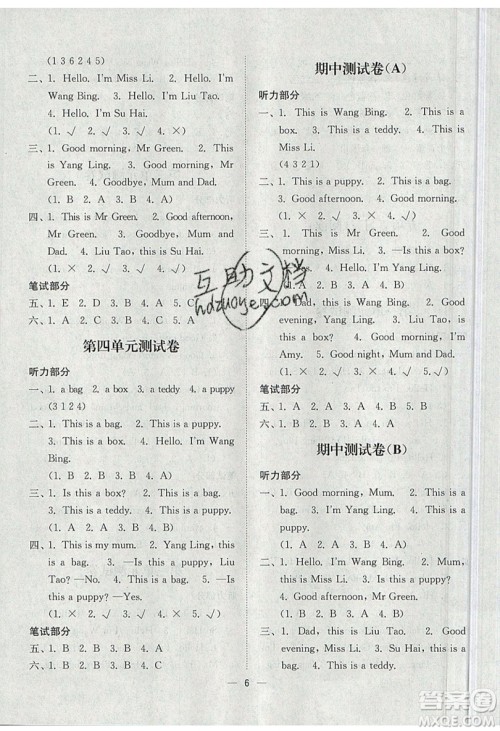 (1 3 6 2 4 5)
二、1. Hello. I'm Miss Li. 2. Hello. I'm
Wang Bing. 3. Hello. I'm Liu Tao.
4. Hello. I'm Su Hai.
(1. √ 2. √ 3. √ 4. ×)
三、1. Good morning, Mr Green. 2. This
is Yang Ling. 3. Good afternoon, Mr
Green. 4. Goodbye, Mum and Dad.
(1. B 2. A 3. B 4. A)
四、1. This is Mr Green. 2. Good afternoon,
Mr Green. 3. Goodbye, Mum and
Dad. 4. Liu Tao, this is Su Hai.
(1. × 2. √ 3. √ 4. √)
笔试部分
五、1. E 2. D 3. B 4. A 5. C
六、1. C 2. B 3. A 4. B 5. A
第四单元测试卷
听力部分
一、1. a bag 2. a box 3. a teddy 4. a puppy
(3 1 2 4)
二、1. This is a bag. 2. This is a puppy.
3. This is a box. 4. Hello. I'm Wang
Bing.
(1. B 2. B 3. B 4. B)
三、1. Is this a box? 2. This is a bag.
3. Good morning. 4. This is a teddy.
(1. B 2. A 3. B 4. A)
四、1. This is my mum. 2. Yang Ling, this
is a puppy. 3. —Is this a teddy, Liu
Tao? —No. 4. —Is this a
puppy? —Yes.
(1. × 2. √ 3. √ 4. √)
笔试部分
五、1. A 2. A 3. A 4. B 5. B
六、1. B 2. B 3. A 4. A 5. C
期中测试卷(A)
听力部分
一、1. This is Wang Bing. 2. This is a
box. 3. This is a teddy. 4. This is
Miss Li.
(4 3 2 1)
二、1. This is a puppy. 2. This is a bag.
3. Good afternoon. 4. Good afternoon.
(1. × 2. × 3. √ 4. ×)
三、1. Goodbye. 2. This is a puppy.
3. This is a teddy. 4. This is a box.
(1. B 2. A 3. B 4. B)
四、1. Dad, this is Liu Tao. 2. Good
evening, Yang Ling. 3. Hello. I'm
Amy. 4. Good night, Mum and Dad.
(1. √ 2. × 3. √ 4. √)
笔试部分
五、1. A 2. B 3. A 4. B 5. A
六、1. C 2. B 3. B 4. B 5. A
期中测试卷(B)
听力部分
一、1. Good morning, Mum. 2. This is a
bag. 3. This is a puppy. 4. Good
evening.
(1. A 2. A 3. B 4. B)
二、1. Hello. I'm Wang Bing. 2. Good
evening, Mum. 3. This is a bag.
4. This is Miss Li.
(1. × 2. √ 3. × 4. √)
三、1. Dad, this is Liu Tao. 2. Good
morning, Miss Li. 3. Su Hai, this is a
teddy. 4. This is a box.
6
互助文档
hdzuoye.com
作业答案圈
www.mofangge.com